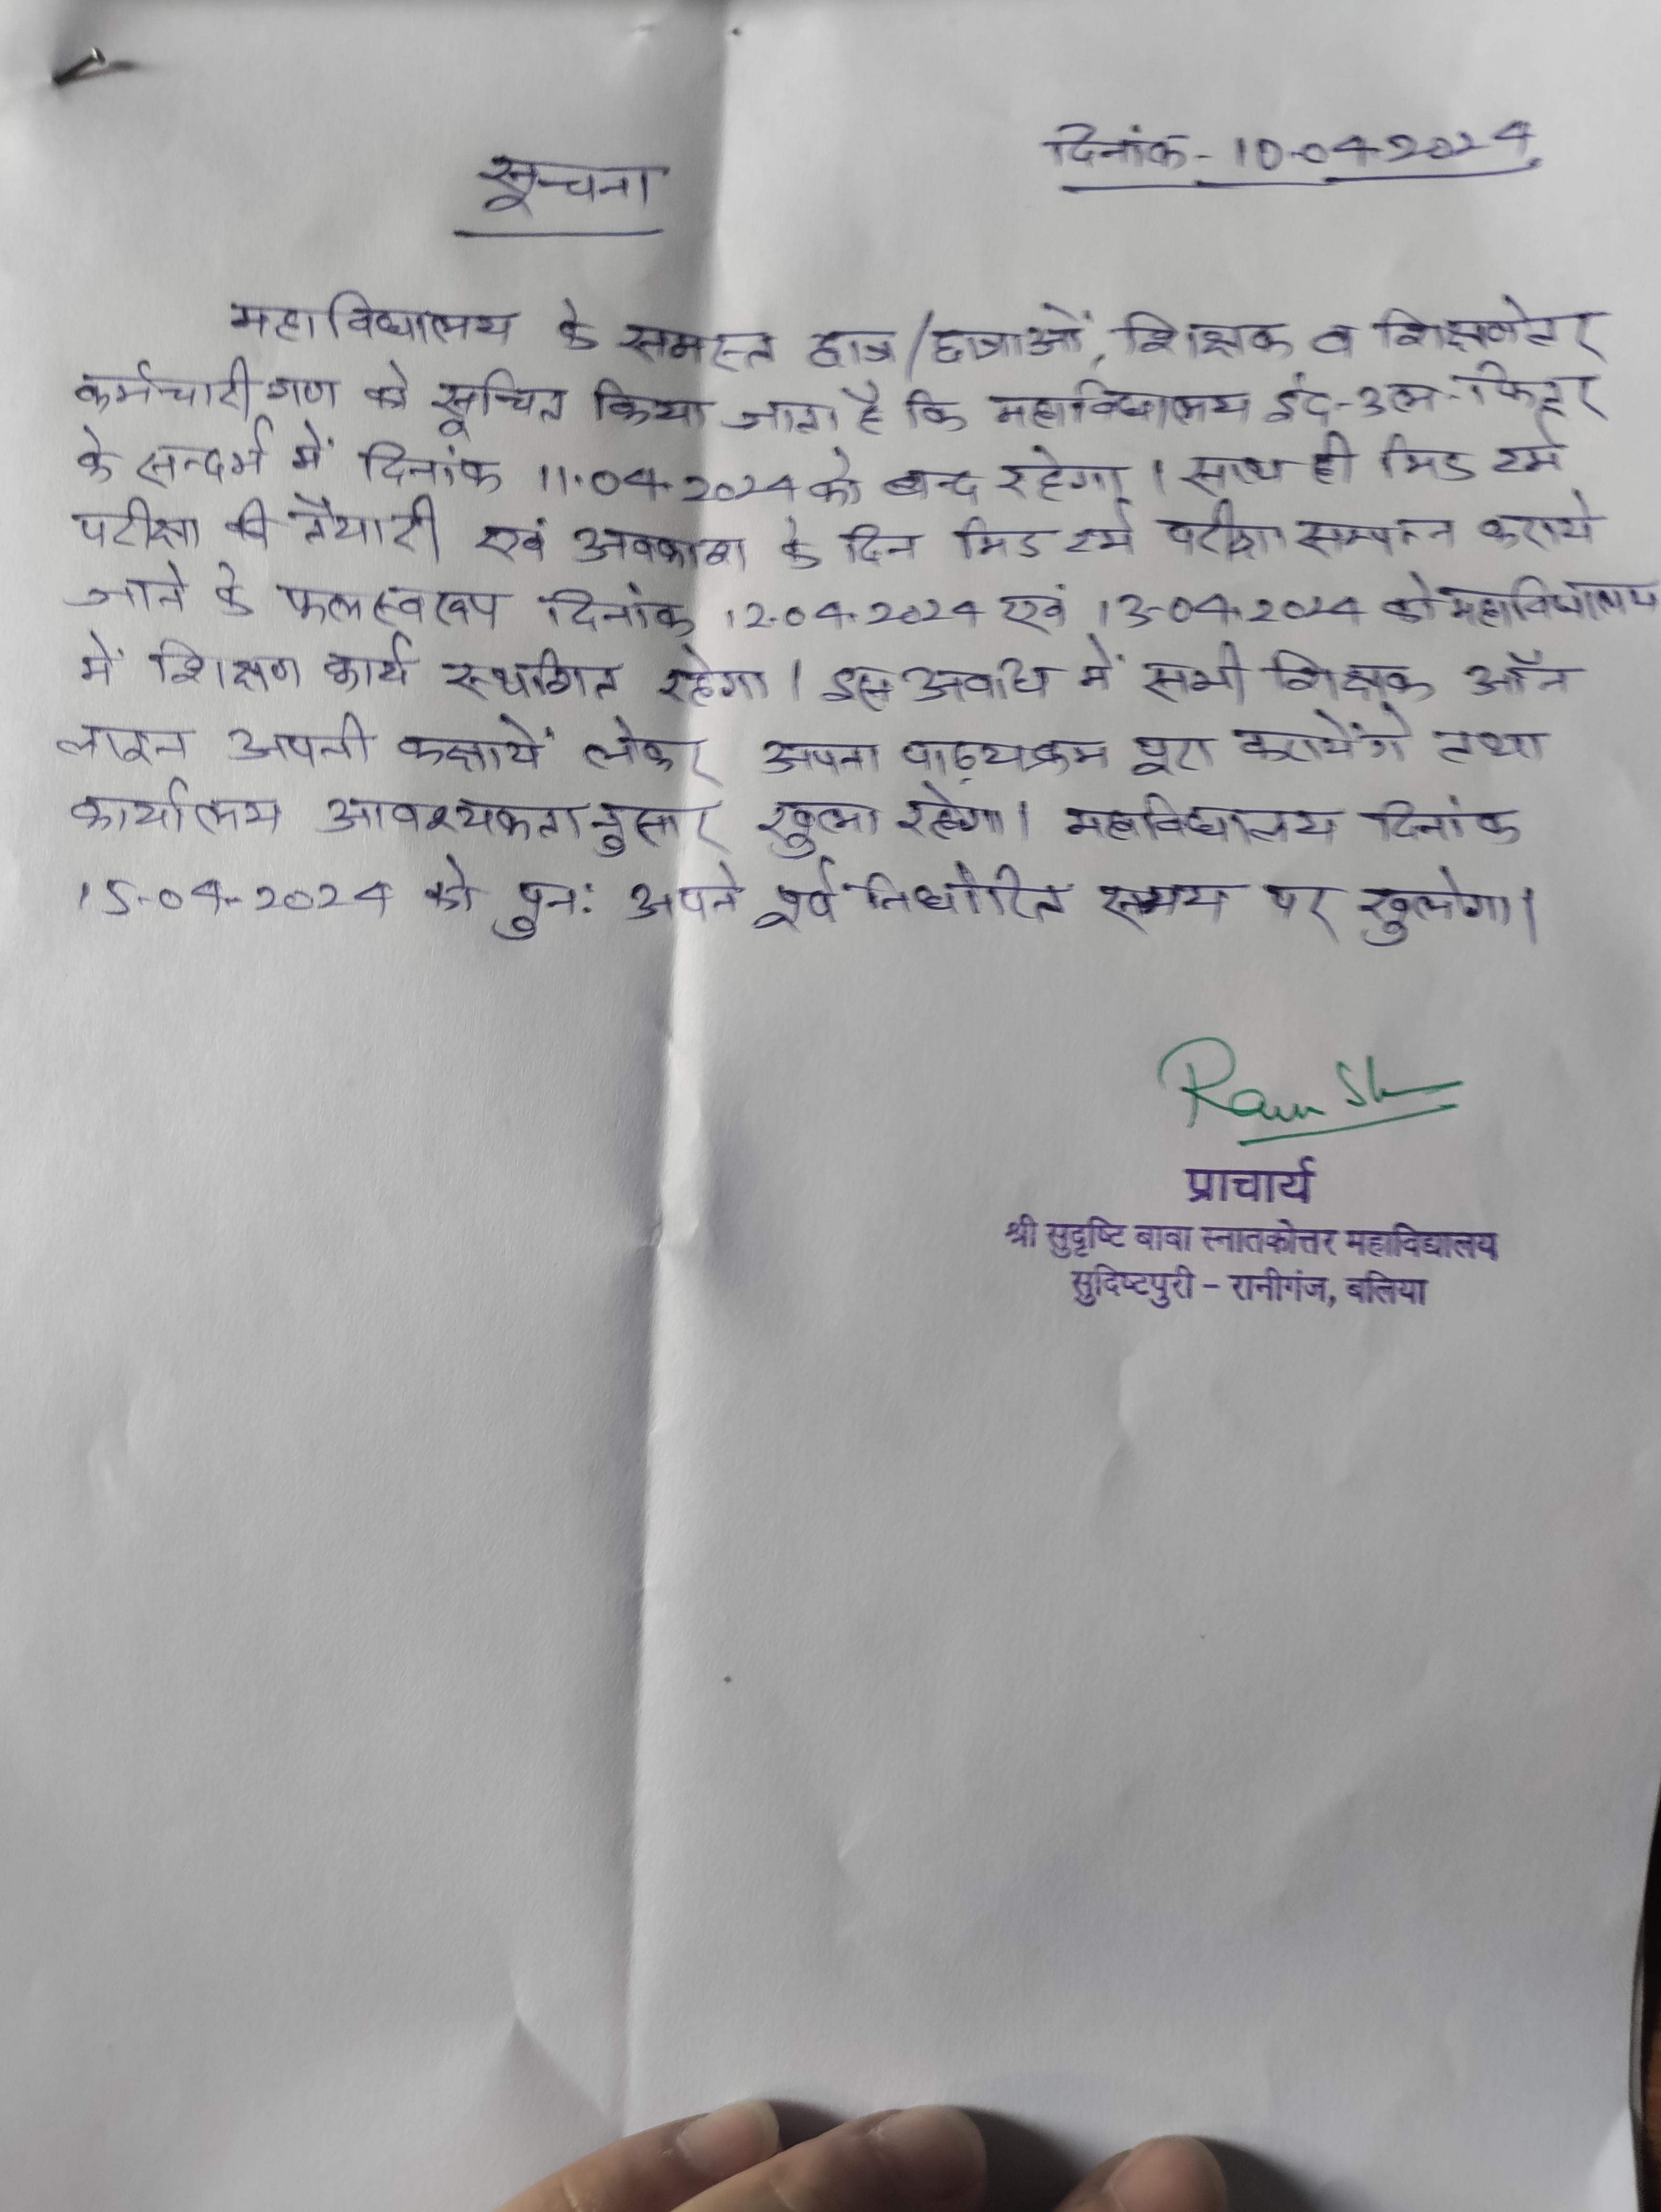 दिनांक- 10-04-2024
सूचना
महाविद्यालय के समस्त छात्र/छात्राओं, शिक्षक व शिक्षणेत्तर
कर्मचारीगण को सूचित किया जाता है कि महाविद्यालय ईद-उल-फितर
के सन्दर्भ में दिनांक 11.04.2024 को बन्द रहेगा। साथ ही मिड टर्म
परीक्षा की तैयारी एवं अवकाश के दिन मिड टर्म परीक्षा सम्पन्न कराये
जाने के फलस्वरूप दिनांक 12.04.2024 एवं 13-04.2024 को महाविद्यालय
में शिक्षण कार्य स्थगित रहेगा। इस अवधि में सभी शिक्षक ऑन
लाइन अपनी कक्षायें लेकर अपना पाठ्यक्रम पूरा करायेंगे तथा
कार्यालय आवश्यकतानुसार खुला रहेगा। महाविद्यालय दिनांक
15-04-2024 को पुन: अपने पूर्व निर्धारित समय पर खुलेगा।
प्राचार्य
श्री सुदृष्टि बाबा स्नातकोत्तर महाविद्यालय
सुदिष्टपुरी - रानीगंज, बलिया